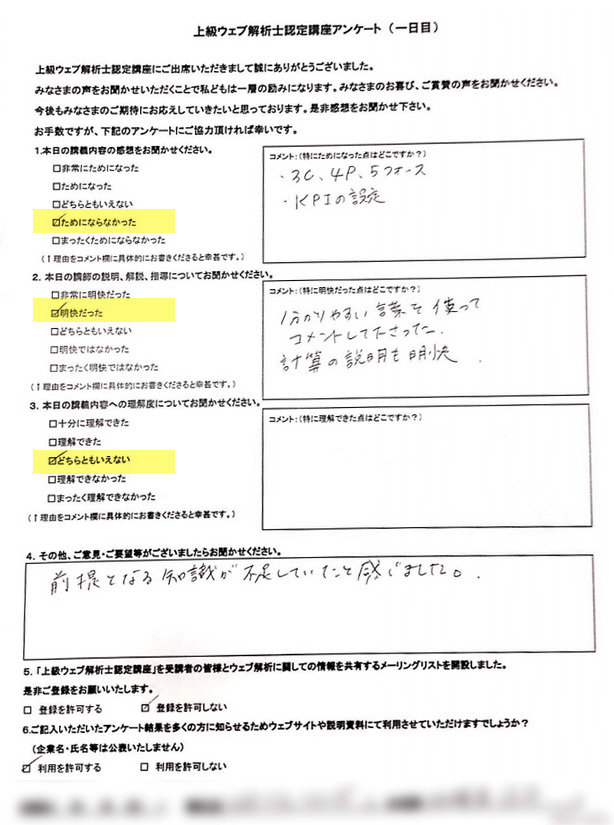 上級ウェブ解析士認定講座アンケート（一日目）
上級ウェブ解析士認定講座にご出席いただきまして誠にありがとうございました。
みなさまの声をお聞かせいただくことで私どもは一層の励みになります。みなさまのお喜び、ご賞賛の声をお聞かせください。
今後もみなさまのご期待にお応えしていきたいと思っております。是非感想をお聞かせ下さい。
お手数ですが、下記のアンケートにご協力頂ければ幸いです。
1.本日の講義内容の感想をお聞かせください。
□非常にためになった
□ためになった
□どちらともいえない
☑ためにならなかった
□まったくためにならなかった
(↑理由をコメント欄に具体的にお書きくださると幸甚です。)
コメント:(特にためになった点はどこですか？)
・3C、4P、5フォース
・KPIの設定
2. 本日の講師の説明、解説、指導についてお聞かせください。
□非常に明快だった
☑明快だった
□どちらともいえない
□明快ではなかった
□まったく明快ではなかった
(↑理由をコメント欄に具体的にお書きくださると幸甚です。)
コメント:(特に明快だった点はどこですか？)
分かりやすい言葉を使って
コメントして下さった.
計算の説明も明快.
3. 本日の講義内容への理解度についてお聞かせください。
□十分に理解できた
□理解できた
☑どちらともいえない
□理解できなかった
□まったく理解できなかった
(↑理由をコメント欄に具体的にお書きくださると幸甚です。)
コメント:(特に理解できた点はどこですか？)
4. その他、ご意見・ご要望等がございましたらお聞かせください。
前提となる知識が不足していたと感じました。
5.「上級ウェブ解析士認定講座」を受講者の皆様とウェブ解析に関しての情報を共有するメーリングリストを開設しました。
是非ご登録をお願いいたします。
□ 登録を許可する ☑ 登録を許可しない
6.ご記入いただいたアンケート結果を多くの方に知らせるためウェブサイトや説明資料にて利用させていただけますでしょうか？
(企業名・氏名等は公表いたしません)
☑ 利用を許可する □ 利用を許可しない